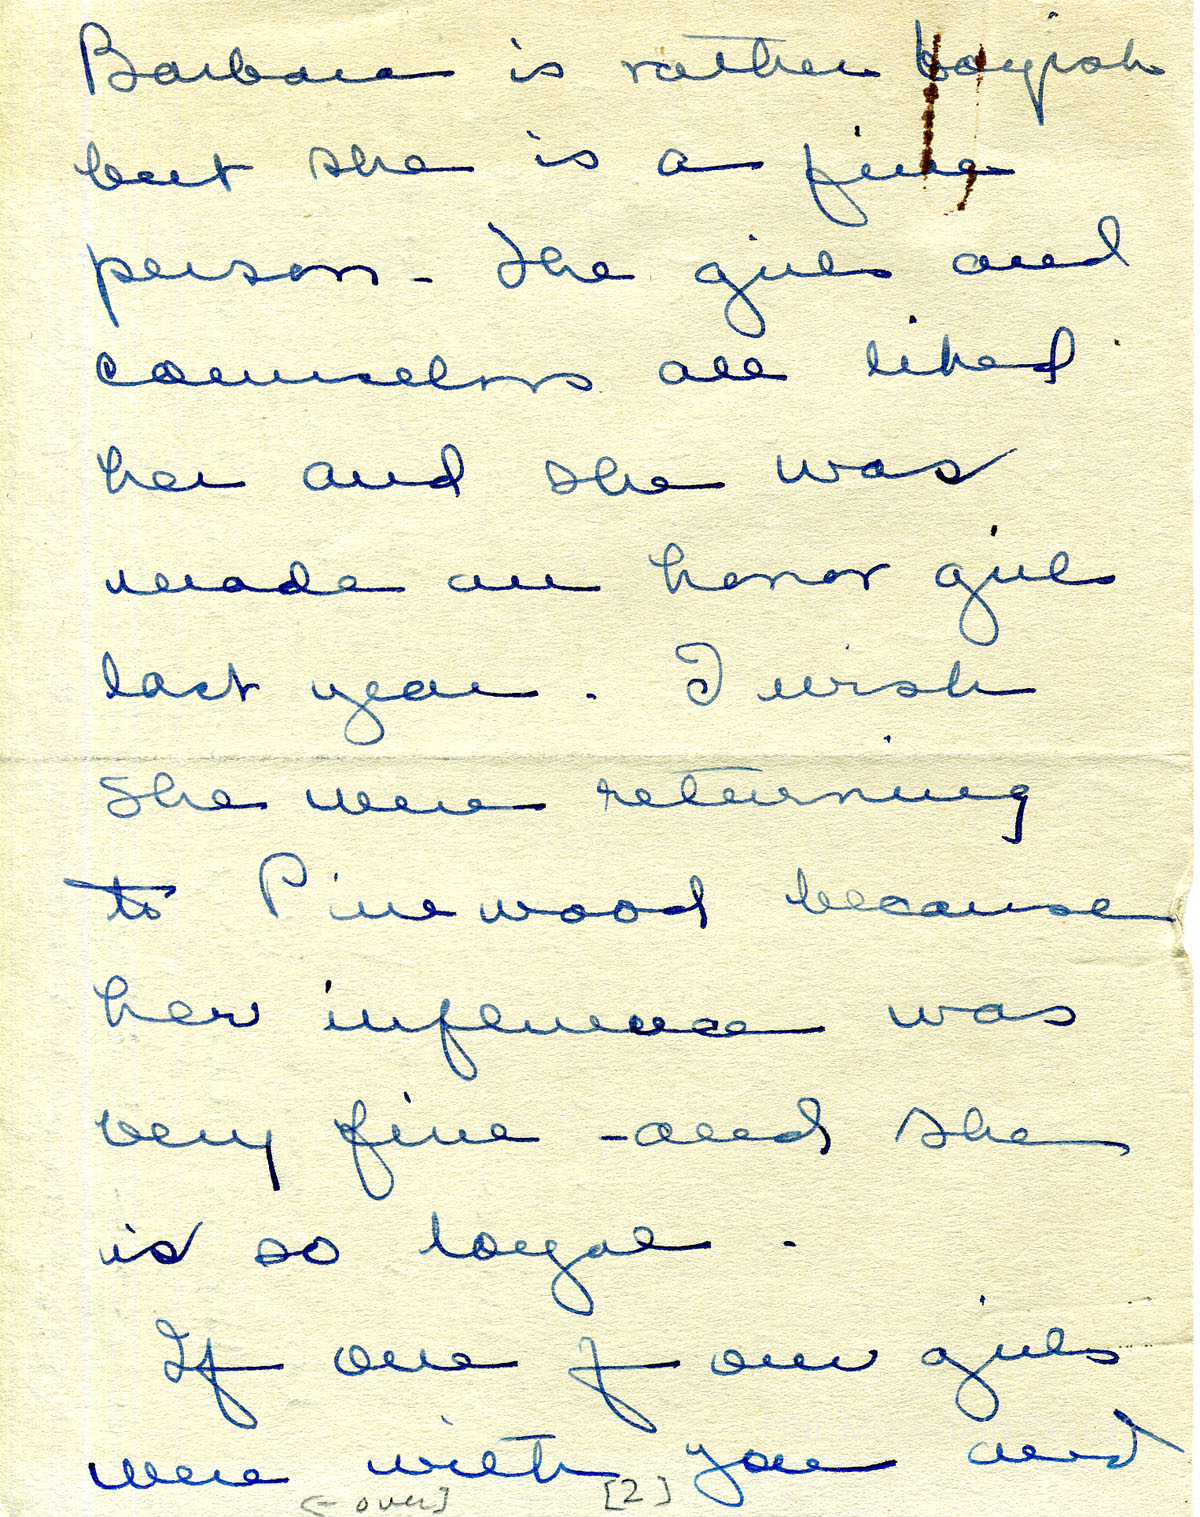 Barbara is rather boyish
but she is a fine
person - The girls and
counselors all liked
her and she was
made an honor girl
last year. I wish
she were returning
to Pinewood because
her influence was
very fine - and she
is so loyal.
If one of our girls
were with you and
(- over] [2]